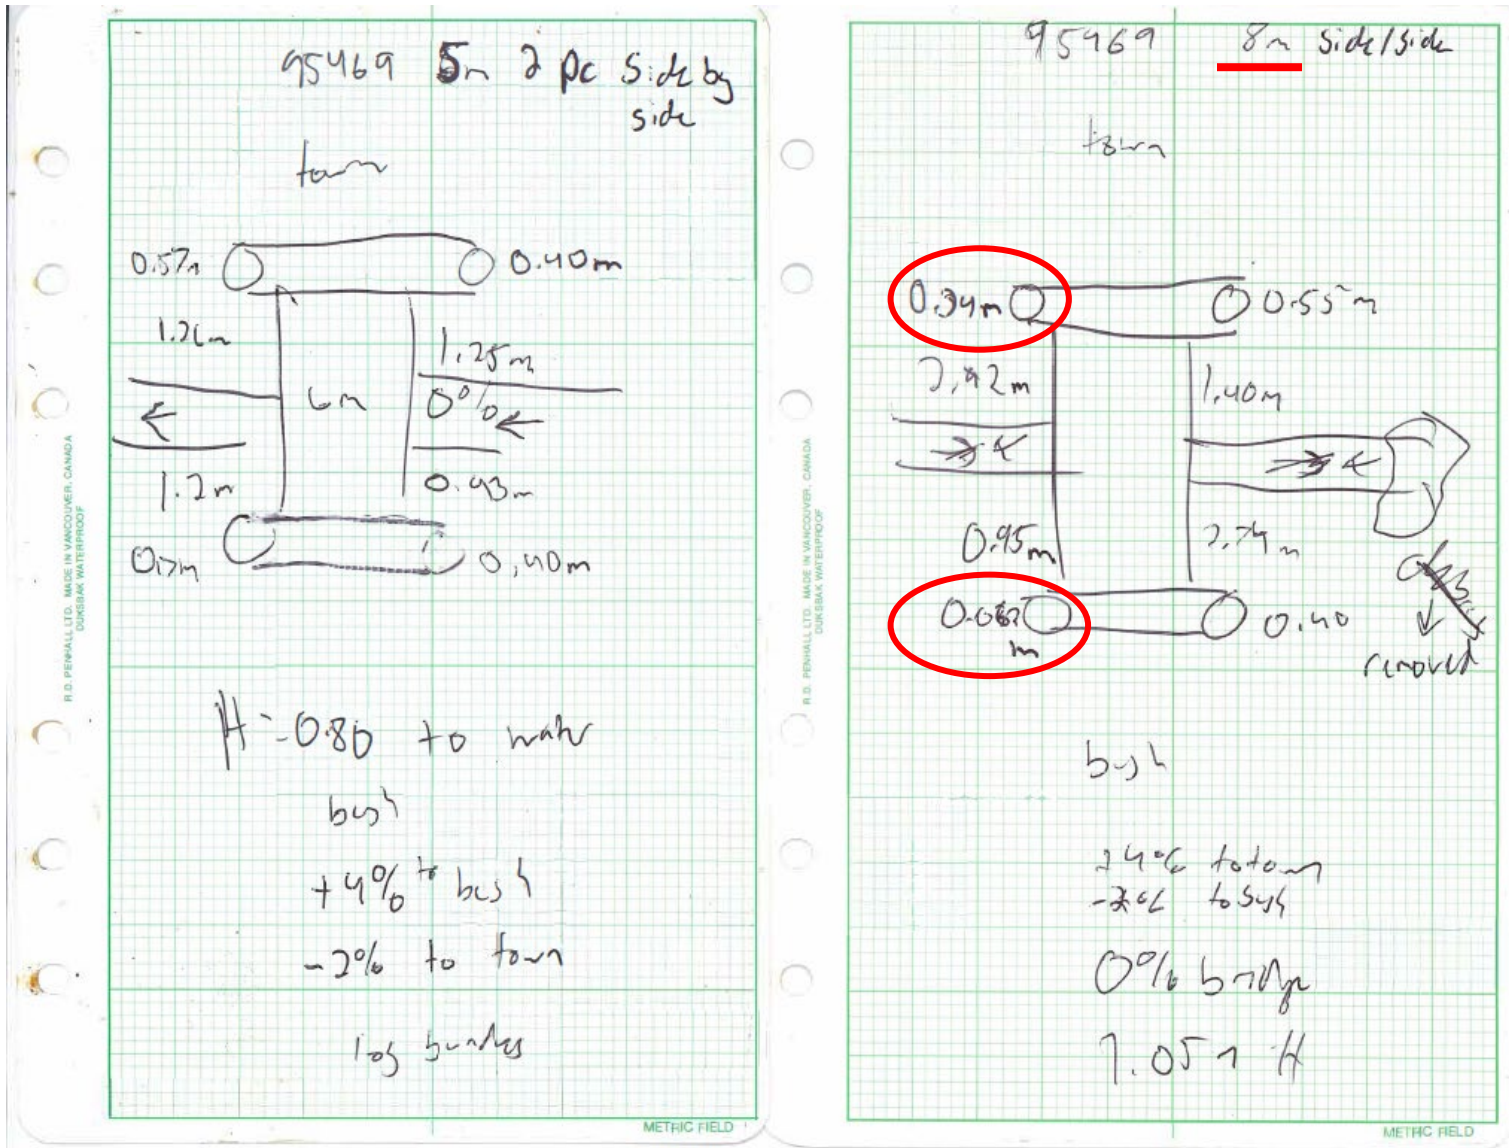 95469 5m 2 pc side by
side
town
0.57m
0.40m
1.26m
1.25m
6m
0%
1.2m
0.93m
0.7m
0.40m
H=0.80 to water
bush
+4% to bush
-2% to town
log bundles
R.D. PENHALL LTD. MADE IN VANCOUVER, CANADA
DUKSBAK WATERPROOF
METRIC FIELD
95469 8m side/side
town
0.34m
0.55m
2.92m
1.40m
0.95m
2.74m
m
0.40
removed
bush
to town
to bush
0% bridge
1.05m H
R.D. PENHALL LTD. MADE IN VANCOUVER, CANADA
DUKSBAK WATERPROOF
METRIC FIELD